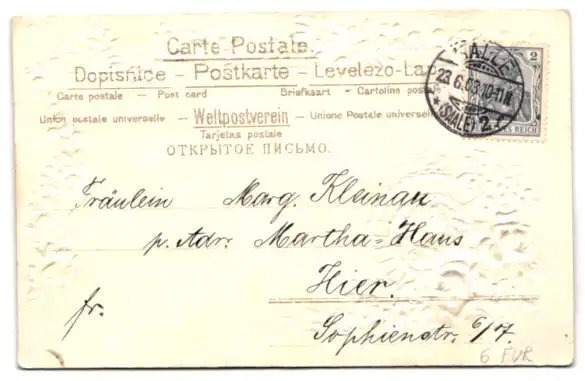 Carte Postale.
Dopisnice — Postkarte — Levelezo-La
Carte postale — Post card Briefkaart — Cartolina posta
Union postale universelle — Weltpostverein — Unione Postale universel
Tarjetas postale
ОТКРЫТОЕ ПИСЬМО.
2
HALLE
23.6.03.10-11V.
(SAALE) 2
REICH
Fräulein Marg. Kleinau
p. Adr. Martha-Haus
Hier.
fr.
Sophienstr. 6/7.
6 EUR